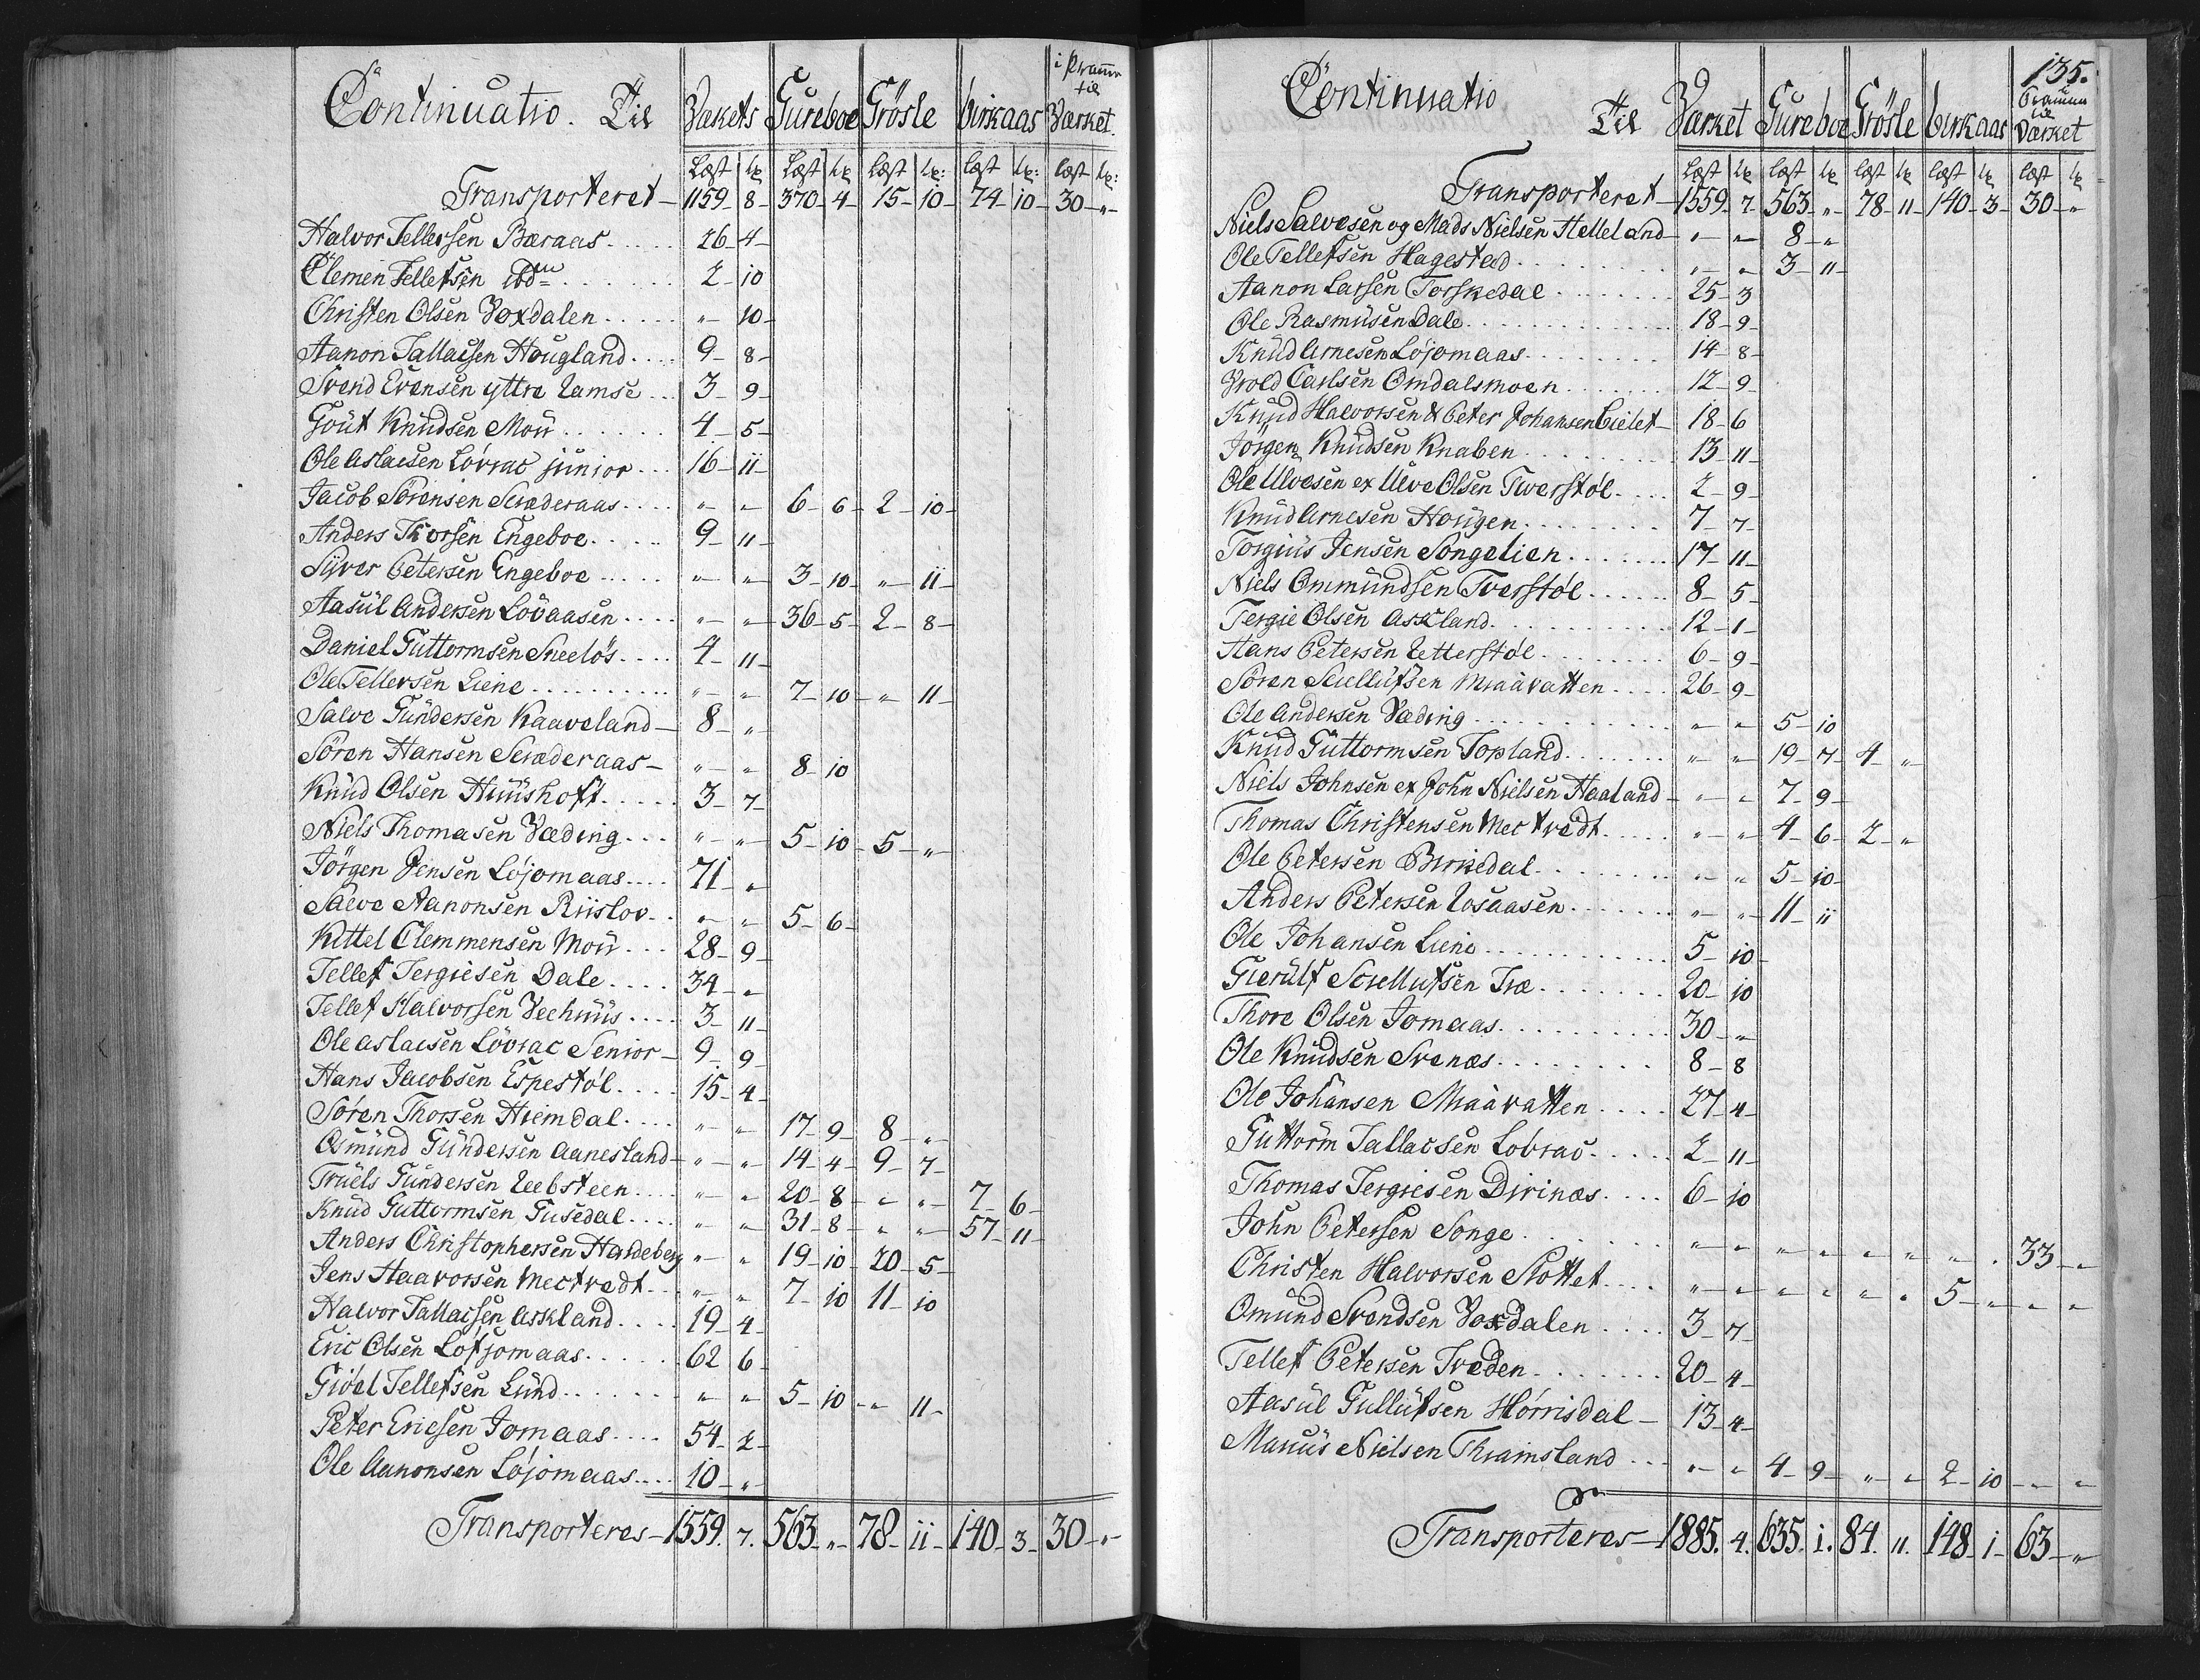 Continuatio. Til Værkets Gureboe Grösle birkaas i Pramm til Værket.
Læst Lp Læst Lp Læst Lp: Læst Lp: Læst Lp:
Transporteret – 1159 – 8 – 370 – 4 – 15 – 10 – 74 – 10 – 30 – „ –
Halvor Tellefsen Bæraas . . . . . 26 – 4 –
Clemen Tellefsen ibdm . . . . . . 2 – 10
Christen Olsen Voxdalen . . . . . „ – 10 –
Aanon Tallacsen Hougland . . . . 9 – 8 –
Svend Evensen yttre Ramse . . . 3 – 9 –
Gout Knudsen Moü . . . . . . 4 – 5 –
Ole Aslacsen Lövrac junior . . . 16 – 11 –
Jacob Sörensen Scræderaas . . . . „ – „ – 6 – 6 – 2 – 10 –
Anders Thorsen Engeboe . . . . . 9 – 11 –
Syver Petersen Engeboe . . . . . „ – „ – 3 – 10 – „ – 11 –
Aasül Andersen Lövaasen . . . . „ – „ – 36 – 5 – 2 – 8 –
Daniel Guttormsen Sneelös . . . . 4 – 11 –
Ole Tellevsen Liene . . . . . . . . . . „ – „ – 7 – 10 – „ – 11 –
Salve Gündersen Kaaveland – 8 – „ –
Sören Hansen Scræderaas – „ – „ – 8 – 10
Knüd Olsen Hüüshoft . . . . . 3 – 7 –
Niels Thomasen Væding . . . „ – „ – 5 – 10 – 5 – „ –
Jörgen Jensen Löjomaas . . . . 71 – „
Salve Aanonsen Riislov . . „ – „ – 5 – 6 –
Kittel Clemmensen Moü . . . 28 – 9 –
Tellef Tergiesen Dale . . . . 34 – „
Tellef Halvorsen Veehuus . . . . 3 – 11 –
Ole Aslacsen Lövrac Senior – 9 – 9
Hans Jacobsen Espestöl . . . . 15 – 4 –
Sören Thorsen Hiemdal . . . . „ – „ – 17 – 9 – 8 – „ –
Osmünd Gündersen Aanesland – „ – „ – 14 – 4 – 9 – 7 –
Trüels Gündersen Reebsteen . . . . „ – „ 20 – 8 – „ – „ – 7 – 6 –
Knüd Guttormsen Gusedal . . . . „ – „ – 31 – 8 – „ – „ – 57 – 11 –
Anders Christophersen Hardeberg „ – „ 19 – 10 – 20 – 5 –
Jens Haavorsen Mectvedt . . „ – „ – 7 – 10 11 – 10
Halvor Tallacsen Askland . . . . 19 – 4 –
Eric Olsen Lofjomaas . . . . . 62 6 –
Giöel Tellefsen Lünd . . . . . . . „ – „ – 5 – 10 – „ – 11 –
Peter Ericsen Jomaas . . . . 54 – 2 –
Ole Aanonsen Löjomaas . . . . 10 – „ –
Transporteres – 1559. 7. 563 – „ – 78 – 11 – 140 – 3 – 30 – „ –
135.
Continuatio Til Værket Gureboe Grösle birkaas Pramm til Værket
Læst Lp Læst Lp Læst Lp Læst Lp Læst Lp
Transporteret – 1559 – 7 – 563 – „ – 78 – 11 – 140 – 3 – 30 – „
Niels Salvesen og Mads Nielsen Helleland – „ – „ – 8 – „
Ole Tellefsen Hagestad . . . . . . . . „ – „ – 3 – 11 –
Aanon Larsen Torskedal . . . . . . . . 25 – 3
Ole Rasmüsen Dale . . . . . . . . . . . . 18 – 9 –
Knüd Arnesen Löjomaas . . . . . . . . . 14 – 8 –
Vrold Carlsen Omdalsmoen . . . . . . . 12 – 9 –
Knud Halvorsen & Peter Johansen Lielet – 18 – 6
Jörgen Knudsen Knaben . . . . . . . . . 13 – 11 –
Ole Ulvesen ex Ulve Olsen Tverstöl . . . . 2 – 9 –
Knud Arnesen Hougen . . . . . . . . 7 – 7 –
Torgiüs Jensen Songelien . . . . . . . 17 – 11 –
Niels Ommündsen Tverstöl . . . . . . 8 – 5 –
Tergie Olsen Askland . . . . . . . . . . . 12 – 1 –
Hans Petersen Retterstöl . . . . . . . . . 6 – 9 –
Sören Sciellufsen Miaavatten . . . . . 26 – 9 –
Ole Andersen Væding . . . . . . . . . . . „ – „ – 5 – 10
Knüd Guttormsen Topland . . . . . . . . „ – „ – 19 – 7 – 4 – „
Niels Johnsen ex John Nielsen Haaland – „ – „ – 7 – 9 –
Thomas Christensen Mectvedt . . . . . „ – „ – 4 – 6 – 2 – „
Ole Petersen Birkedal . . . . . . . . . „ – „ – 5 – 10 –
Anders Petersen Rosaasen . . . . . . . „ – „ – 11 – 11
Ole Johansen Liene . . . . . . . . . . . 5 – 10 –
Gierülf Sciellufsen Træ . . . . . . . . 20 – 10
Thore Olsen Jomaas . . . . . . . . . . 30 – „
Ole Knudsen Svenæs . . . . . . . . . 8 – 8
Ole Johansen Miaavatten . . . . 27 – 4 –
Guttorm Tallacsen Lobrac . . . . . 2 – 11 –
Thomas Tergiesen Divinæs . . . . 6 – 10
John Petersen Songe . . . . . . . „ – „ – „ – „ – „ – „ „ – . 33 – „
Christen Halvorsen Slottet . . . . „ – „ – „ – „ – „ – „ 5 – „ – „ – „
Omünd Svendsen Voxdalen . . . . 3 – 7 –
Tellef Petersen Træden . . . . . . . 20 – 4 –
Aasül Gullüfsen Hörrisdal – 13 – 4 –
Marcüs Nielsen Thraimsland . . . „ – „ – 4 – 9 – „ – „ – 2 – 10 – „ – „
Transporteres – 1885. 4. 635. 1. 84. 11. 148 – 1 – 63 – „